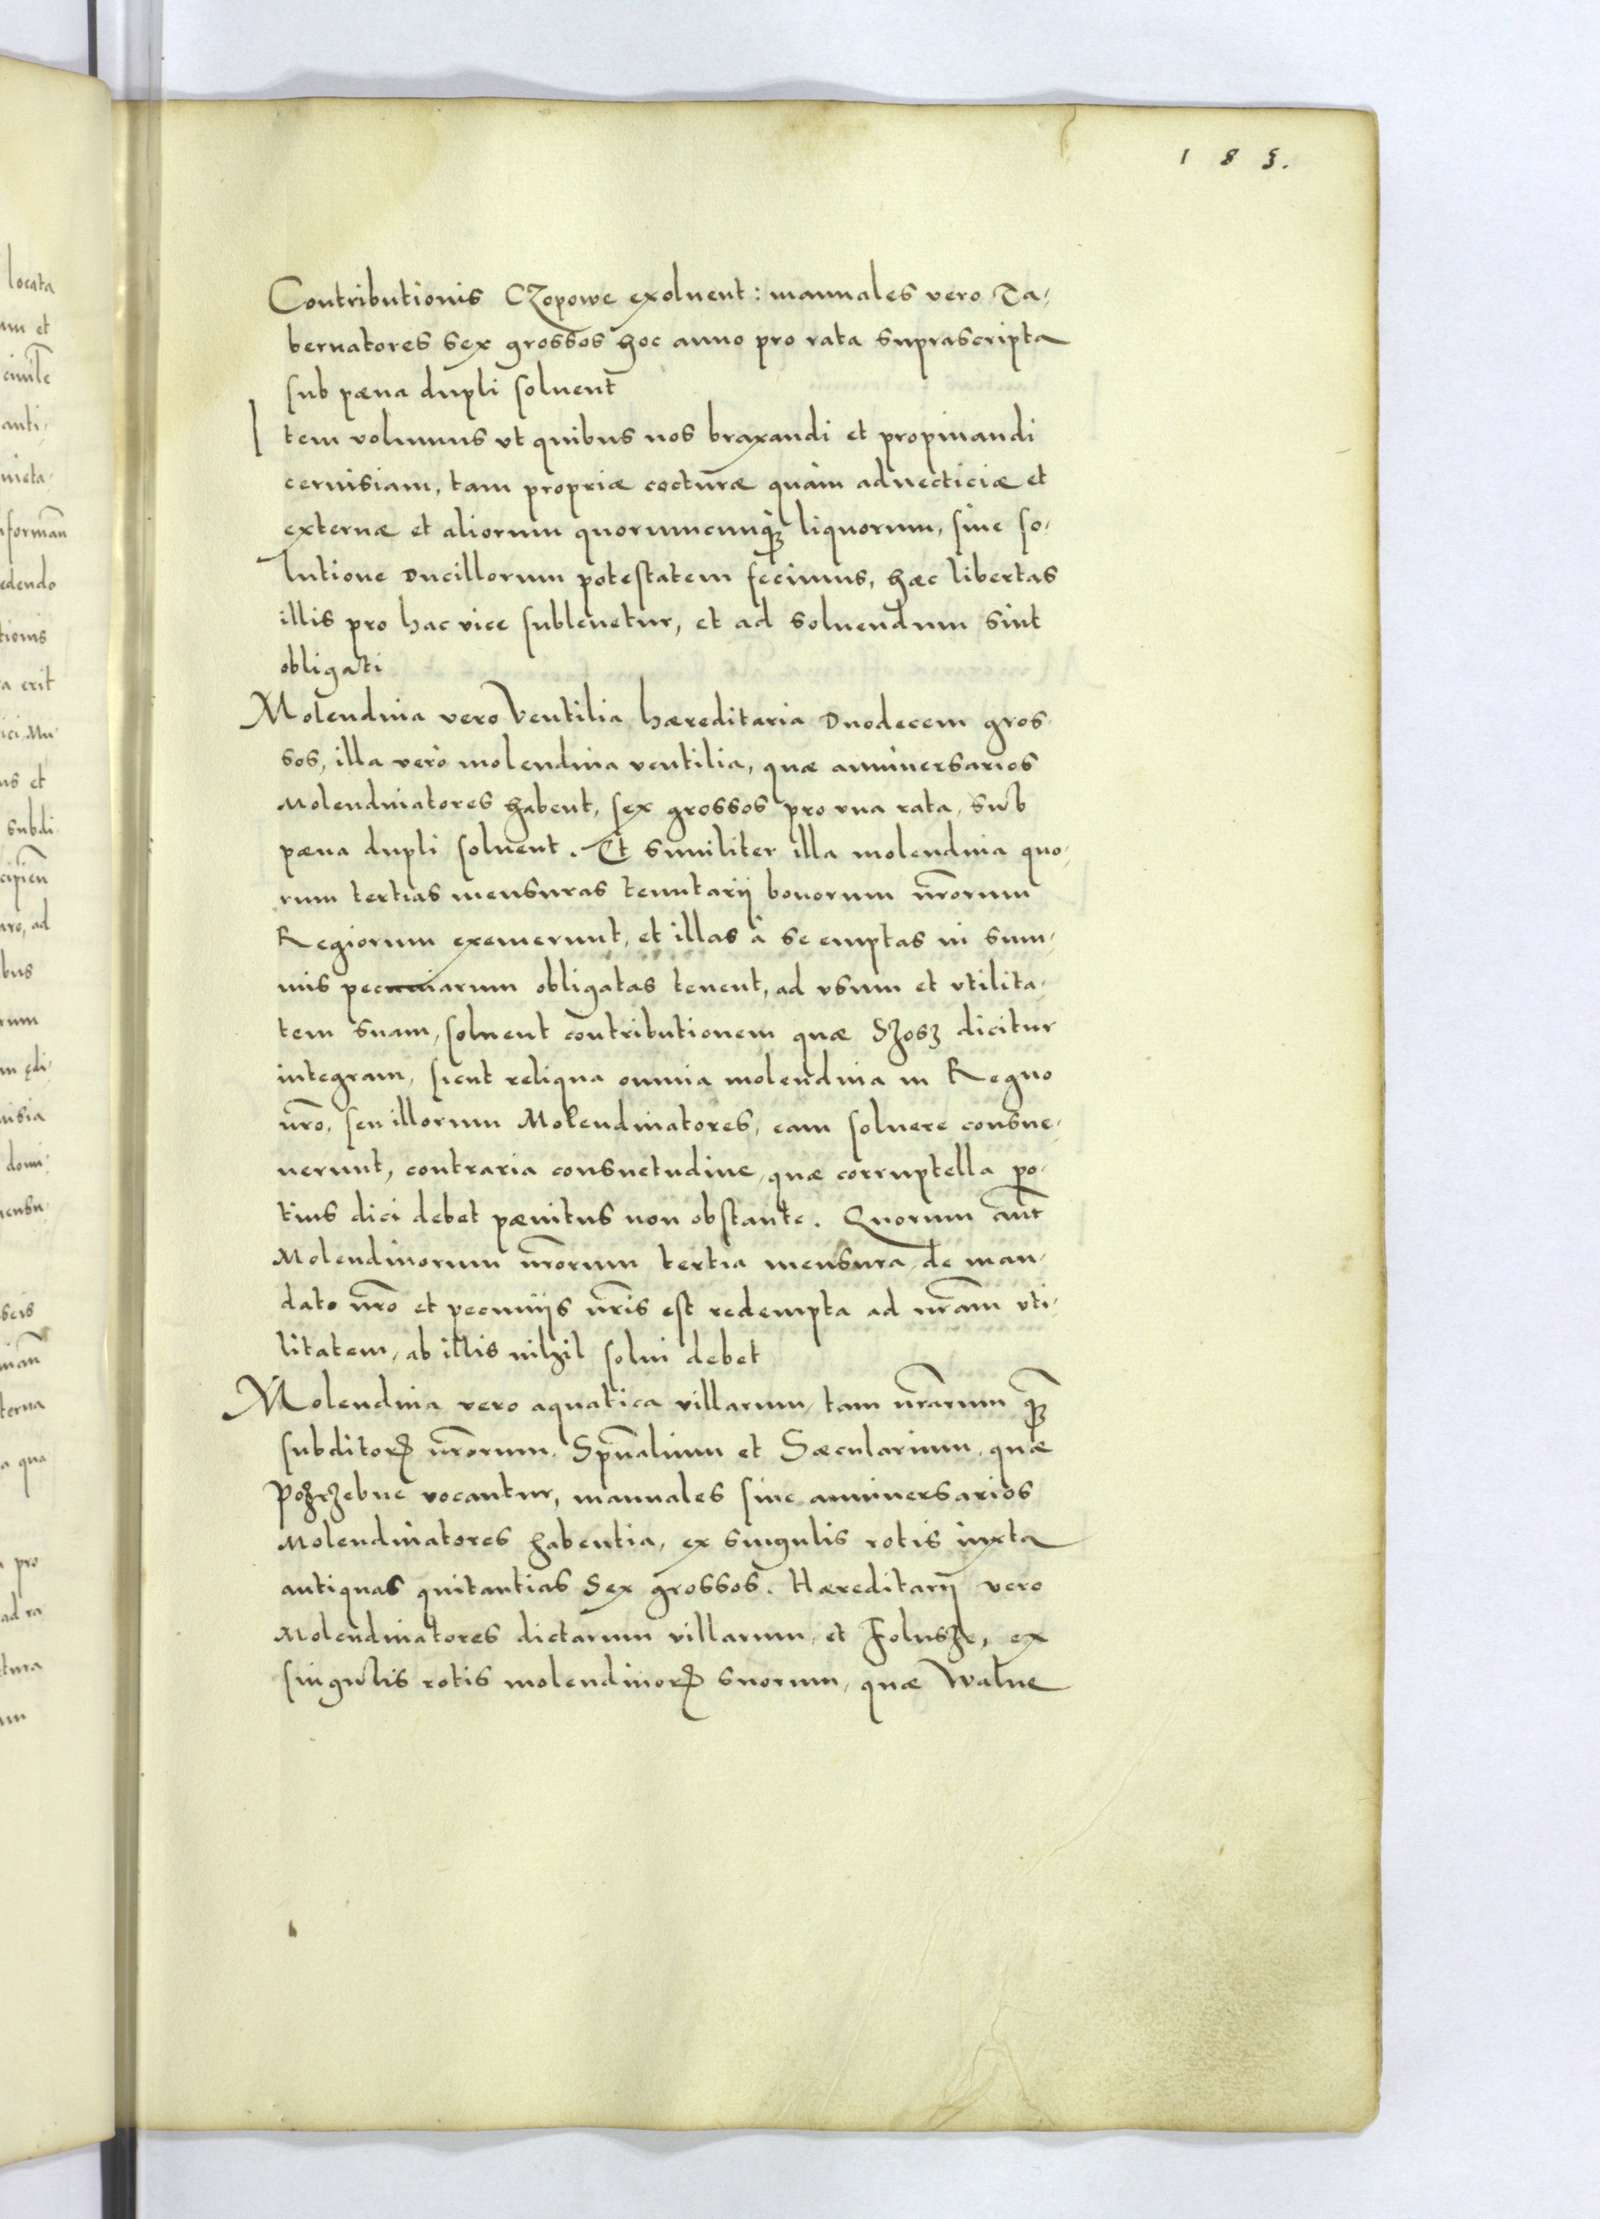 183.
Contributionis CZopowe exoluent: manuales vero Ta-
bernatores sex grossos hoc anno pro rata suprascripta
sub pæna dupli soluent
Item volumus vt quibus nos braxandi et propinandi
ceruisiam, tam propriæ cocturæ quàm aduecticiæ et
externæ et aliorum quorumcunq liquorum, sine so-
lutione Ducillorum potestatem fecimus, hæc libertas
illis pro hac vice subleuetur, et ad soluendum sint
obligati
Molendina vero Ventilia hæreditaria Duodecem gros-
sos, illa verò molendina ventilia, quæ anniuersarios
Molendinatores habent, sex grossos pro vna rata, sub
pæna dupli soluent. Et similiter illa molendina quo-
rum tertias mensuras tenutarij bonorum nr̃orum
Regiorum exemerunt, et illas à se emptas in sum-
mis pecuniarum obligatas tenent, ad vsum et vtilita-
tem suam, soluent contributionem quæ Szosz dicitur
integram, sicut reliqua omnia molendina in Regno
nr̃o, seu illorum Molendinatores, eam soluere consue-
uerunt, contraria consuetudine, quæ corruptella po-
tius dici debet pænitus non obstante. Quorum aut̃
Molendinorum nr̃orum tertia mensura de man-
dato nr̃o et pecunijs nr̃is est redempta ad nr̃am vti-
litatem, ab illis nihil solui debet
Molendina vero aquatica villarum, tam nr̃arum q̃
subditor nr̃orum, Spũalium et Sæcularium, quæ
Poztzebne vocantur, manuales siue anniuersarios
Molendinatores habentia, ex singulis rotis iuxta
antiquas quitantias Sex grossos. Hæreditarij vero
Molendinatores dictarum villarum, et Folusze, ex
singulis rotis molendinor suorum, quæ Walne